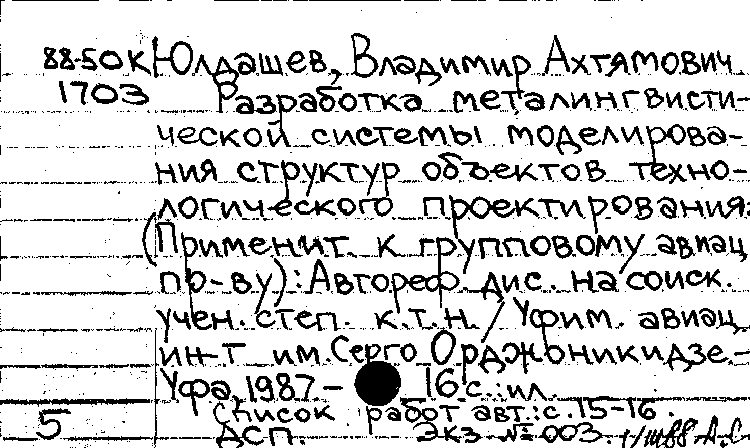 88-50К Юлдашев, Владимир Ахтямович
1703 Разработка металингвисти-
ческой системы моделирова-
ния структур объектов техно-
логического проектирования:
(Применит. к групповому авиац.
пр-ву): Автореф. дис. на соиск.
учен. степ. к.т.н. / Уфим. авиац.
ин-т им. Серго Орджоникидзе.-
Уфа, 1987 - 16 с.: ил.
Список работ авт.: с. 15-16.
5 ДСП. Экз. № 003.